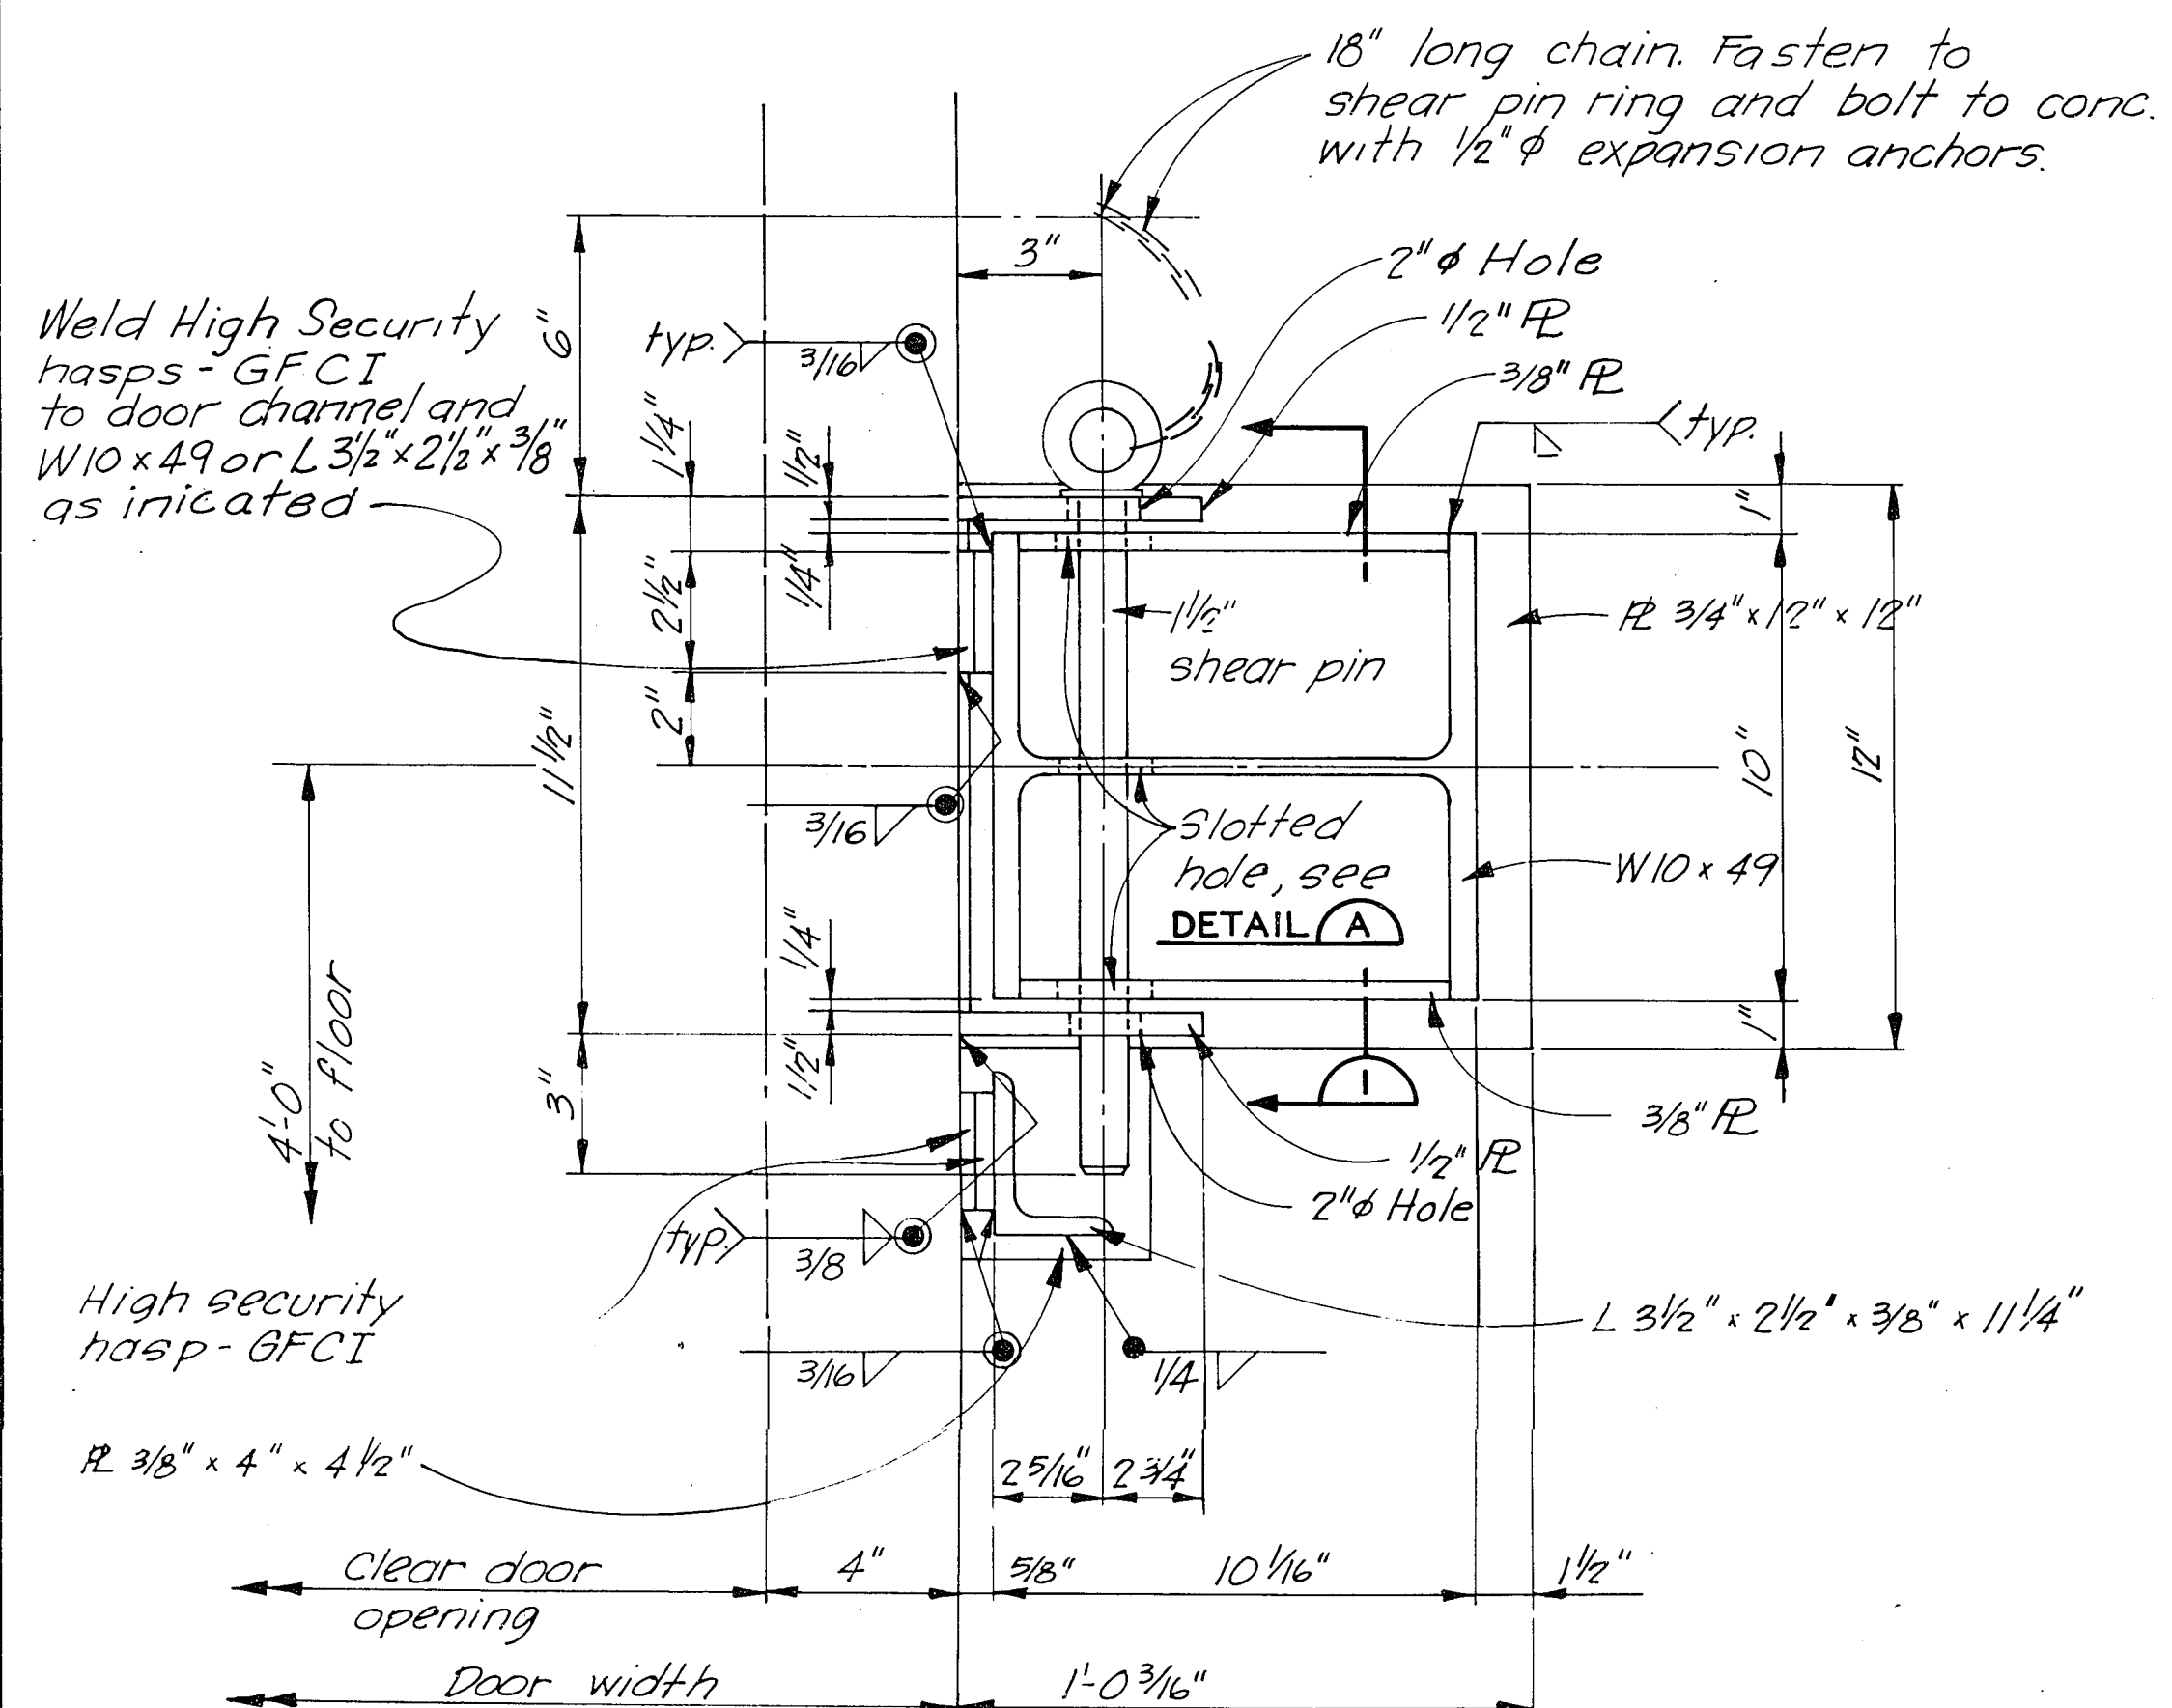 18" long chain. Fasten to
shear pin ring and bolt to conc.
with 1/2" ϕ expansion anchors.
3"
2" ϕ Hole
1/2" ℄
3/8" ℄
typ.
Weld High Security
hasps - GFCI
to door channel and
W10 x 49 or L 3 1/2" x 2 1/2" x 3/8"
as inicated
6"
typ.
3/16
1 1/4"
1/2"
1"
1/4"
2 1/2"
2"
1 1/2"
shear pin
℄ 3/4" x 12" x 12"
11 1/2"
10"
12"
3/16
Slotted
hole, see
DETAIL A
W10 x 49
1/4"
1/2"
1"
4'-0"
to floor
3"
1
3/8" ℄
1/2" ℄
2" ϕ Hole
typ.
3/8
High security
hasp - GFCI
3/16
1/4
L 3 1/2" x 2 1/2" x 3/8" x 11 1/4"
℄ 3/8" x 4" x 4 1/2"
2 5/16" 2 3/4"
Clear door
opening
4"
5/8"
10 1/16"
1 1/2"
Door width
1'-0 3/16"